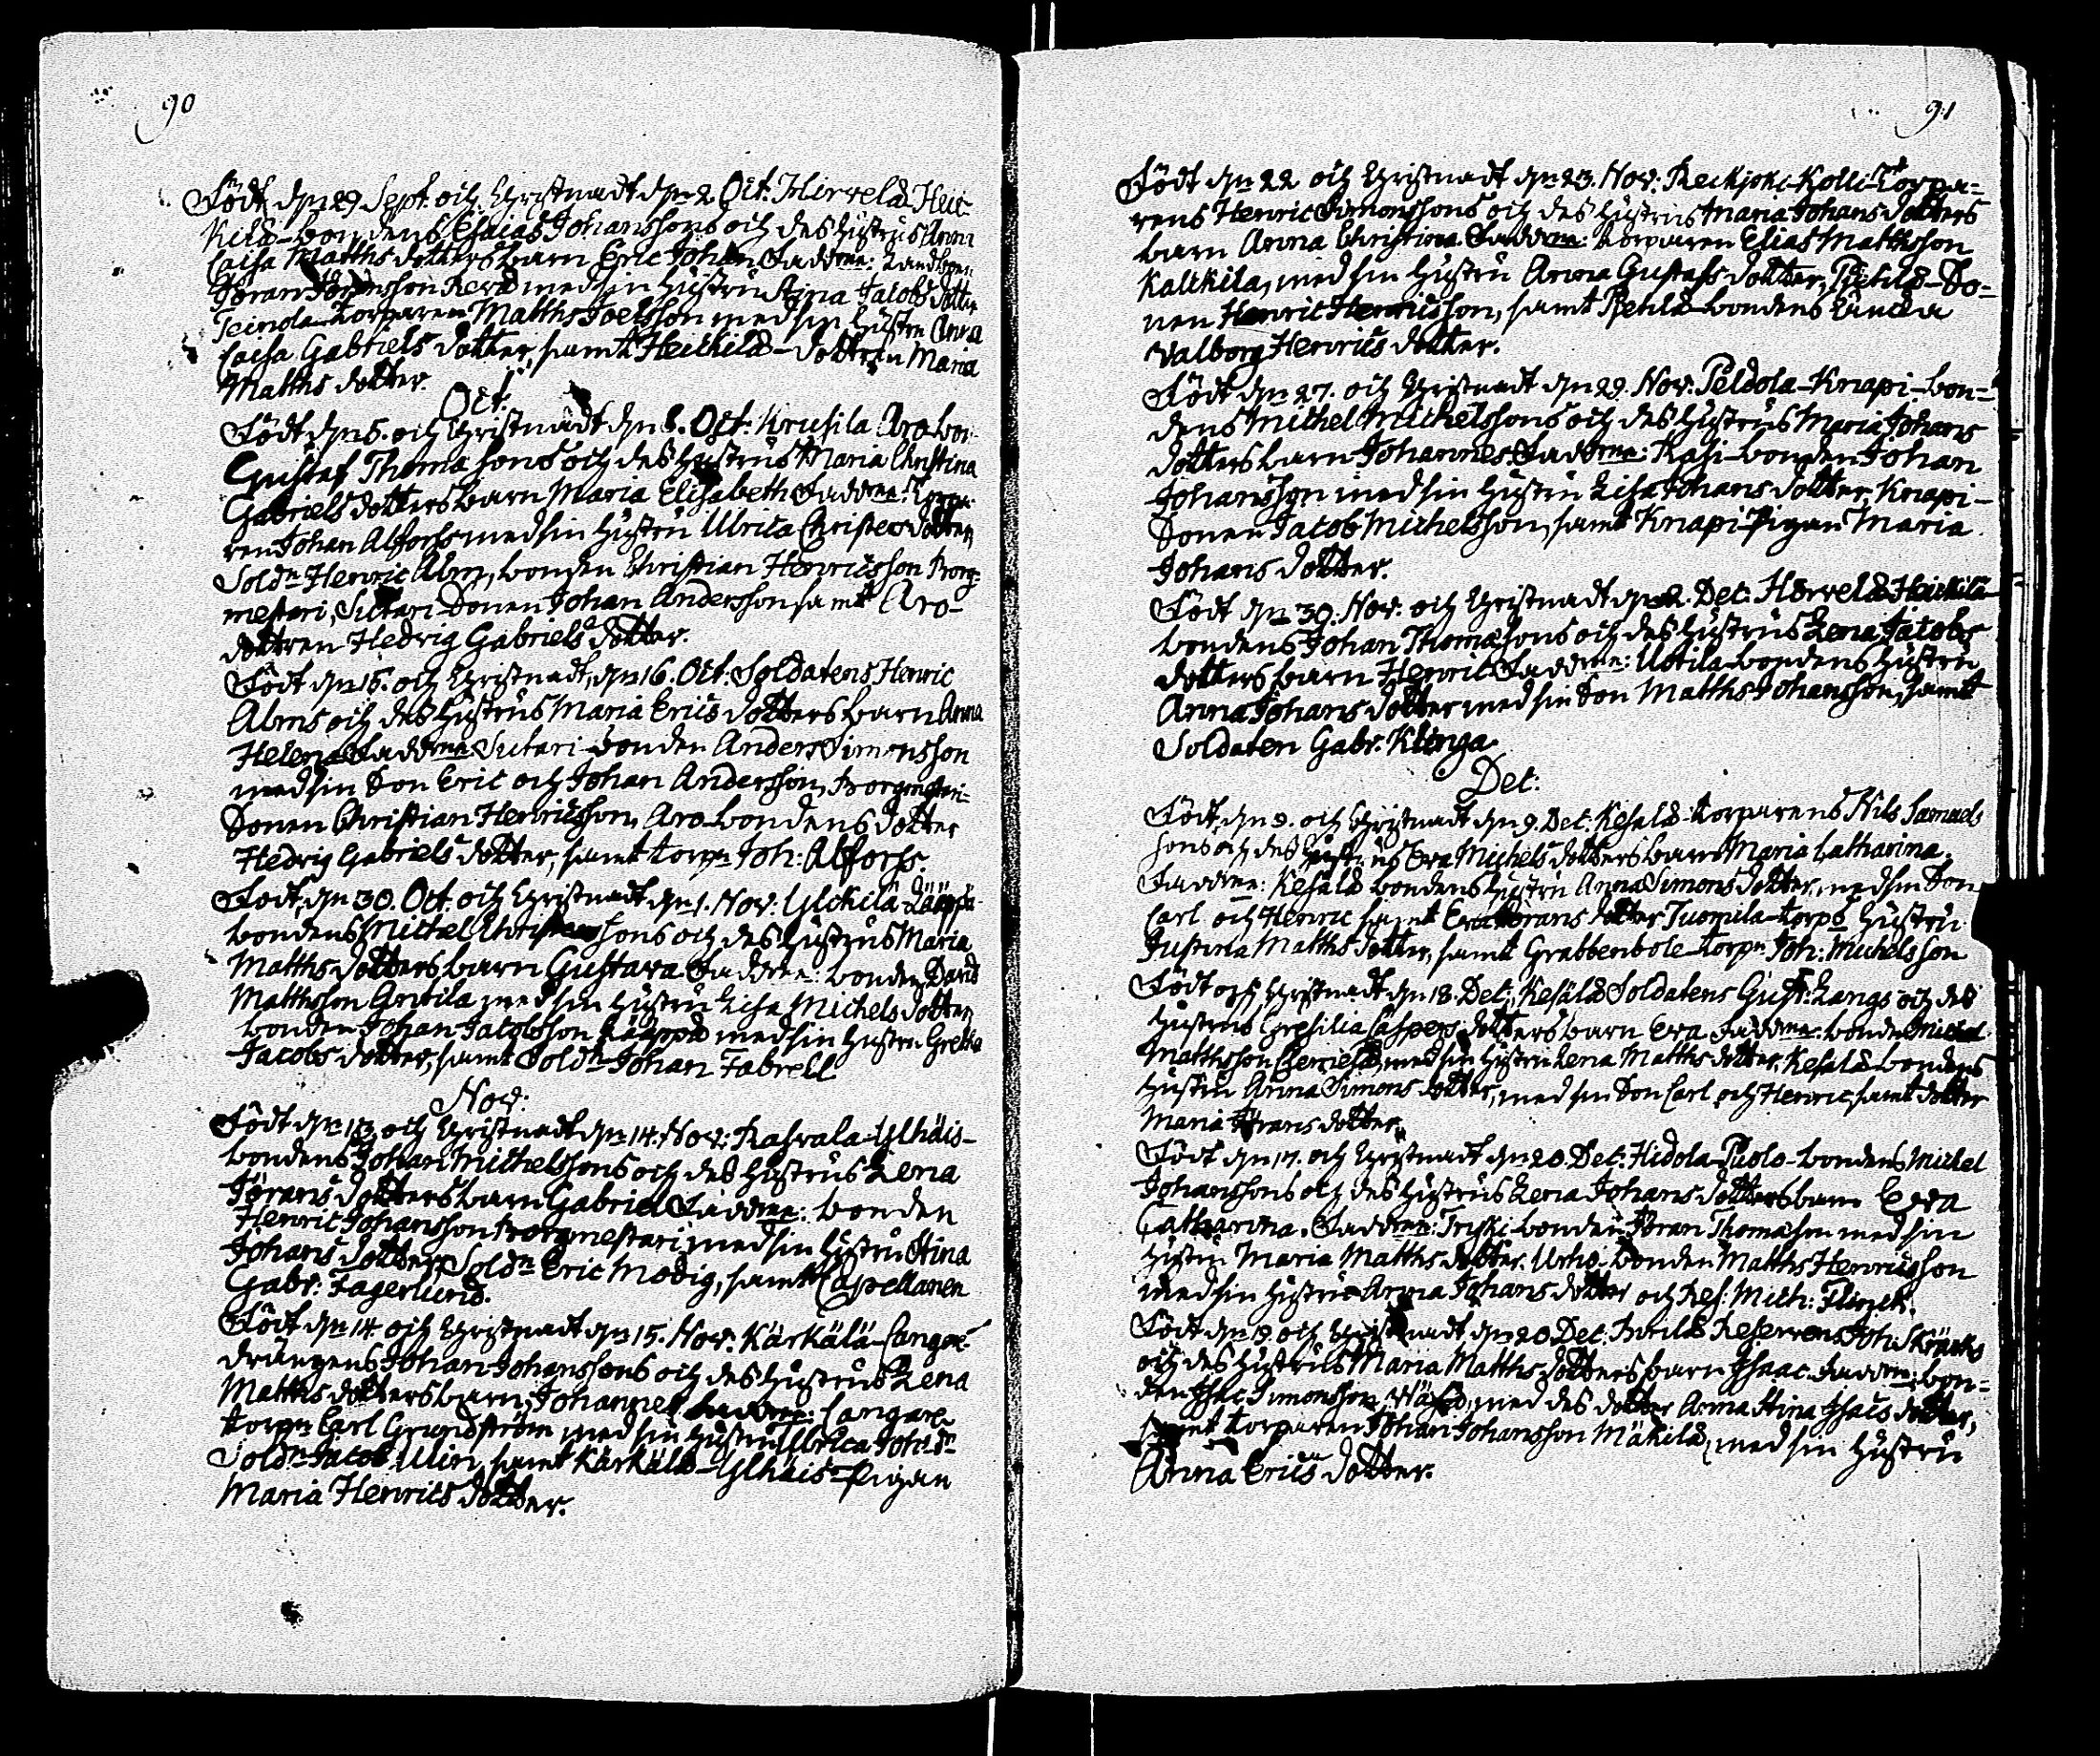 90
Födt dn 29 Sept. och Christnadt dn 2 Oct. Hirvelä Hei-
kilä-bondens Esaias Johanssons och des hustrus Anna
Caisa Matths dotters barn Eric Johan Faddrne: Landbon
Jöran Jöransson Rerd med sin hustru Stina Jacobs dotter
Teinola-torparen Matths Joelsson med sin hustru Anna
Caisa Gabriels dotter, samt Heikilä-dottren Maria
Matths dotter.
Oct.
Födt dn 5. och Christnadt dn 8. Oct: Krusila Aro bon-
Gustaf Thomasons och des hustrus Maria Christina
Gabriels dotters barn Maria Elisabeth Faddrne: Torpa-
ren Johan Alfors med sin hustru Ulrica Christers dotter,
Soldn Henric Alm, bonden Christian Henricsson Borg-
mestari, Sutari-Sonen Johan Andersson samt Aro-
dottren Hedvig Gabriels dotter.
Födt dn 15. och Christnadt, dn 16. Oct. Soldatens Henric
Alms och des hustrus Maria Erics dotters barn Anna
Helena Faddrne Sutari-bonden Anders Simonsson
med sin Son Eric och Johan Andersson, Borgmestari-
Sonen Christian Henricsson, Aro-bondens dotter
Hedvig Gabriels dotter, samt torpn Joh: Alfors.
Födt, dn 30. Oct. och Christnadt dn 1. Nov. Ylikilä Lääppä-
bondens Michel Christerssons och des hustrus Maria
Matths dotters barn Gustava Faddrne: bonden David
Mattsson Antila med sin hustru Lisa Michels dotter,
bonden Johan Jacobsson Lääppä med sin hustru Gretha
Jacobs dotter, samt Soldn Johan Fabrell
Nov:
Födt dn 13. och Christnadt dn 14. Nov: Rahvala-Ylhäis-
bondens Johan Michelssons och des hustrus Lena
Jörans dotters barn Gabriel Faddrne: bonden
Henric Johansson Borgmestari med sin hustru Stina
Johans dotter, Soldn Eric Modig, samt Capellanen
Gabr: Fagerlund.
Födt dn 14. och Christnadt dn 15. Nov. Kärkälä-Cangare-
drängens Johan Johanssons och des hustrus Lena
Matths dotters barn, Johannes Faddrne: Cangare
torpn Carl Grundström med sin hustru Ulrica Joh: dr
Soldn Jacob Ulin, samt Kärkälä-Ylhäis-pigan
Maria Henrics dotter.
91
Födt dn 22 och Christnadt dn 23. Nov. Reikjoki-Kolli-Torpa-
rens Henric Simonssons och des hustrus Maria Johans dotters
barn Anna Christina Faddrne: torparen Elias Mattsson
Kalikila, med sin hustru Anna Gustafs dotter, -So-
nen Henric Henricsson, samt -bondens Encka
Valborg Henrics dotter.
Födt dn 27. och Christnadt dn 29. Nov. Peldola-Knapi-bon-
dens Michel Michelssons och des hustrus Maria Johans
dotters barn Johannes Faddrne: Rasi-bonden Johan
Johansson med sin hustru Lisa Johans dotter, Knapi-
Sonen Jacob Michelsson, samt Knapi-Pigan Maria
Johans dotter.
Födt dn 30. Nov. och Christnadt dn 2. Dec. Hirvelä Heikilä-
bondens Johan Thomasons och des hustrus Lena Jacobs
dotters barn Henric Faddrne: Uotila-bondens hustru
Anna Johans dotter med sin Son Matths Johansson, samt
Soldaten Gabr. Klinga.
Dec:
Födt, dn 8. och Christnadt dn 9. Dec. Kesälä-torparens Nils Samuels
sons och des hustrus Eva Michels dotters barn Maria Catharina.
Faddrne: Kesälä bondens hustru Anna Simons dotter, med sin Son
Carl och Henric samt Eva Jörans dotter Tuomila-torps hustru
Justina Matths dotter, samt Grabbenbole-torpn Joh: Michelsson
Födt och Christnadt dn 18. Dec: Kesälä Soldatens Gust: Langs och des
hustrus Gresilia Caspers dotters barn Eva Faddrne: bonden Michel
Mattsson med sin hustru Lena Matths dotter. Kesälä bondens
hustru Anna Simons dotter, med sin Son Carl och Henric, samt dotter
Maria Jörans dotter.
Födt dn 17. och Christnadt dn 20. Dec. Hidola-Puolo-bondens Michel
Johanssons och des hustrus Lena Johans dotters barn Eva
Catharina. Faddrne: Triski-bonden Jöran Thomason med sin
hustru Maria Matths dotter. Urho-bonden Matths Henricsson
med sin hustru Anna Johans dotter och Res: Mich: Flinck.
Födt dn 19. och Christnadt, dn 20. Dec. Reservens Joh: Skräcks
och des hustrus Maria Matths dotters barn Isaac. Faddrne: bon-
den Isac Simonsson med des dotter Anna Stina Isacs dotter,
samt torparen Johan Johansson Mäkilä, med sin hustru
Anna Erics dotter.